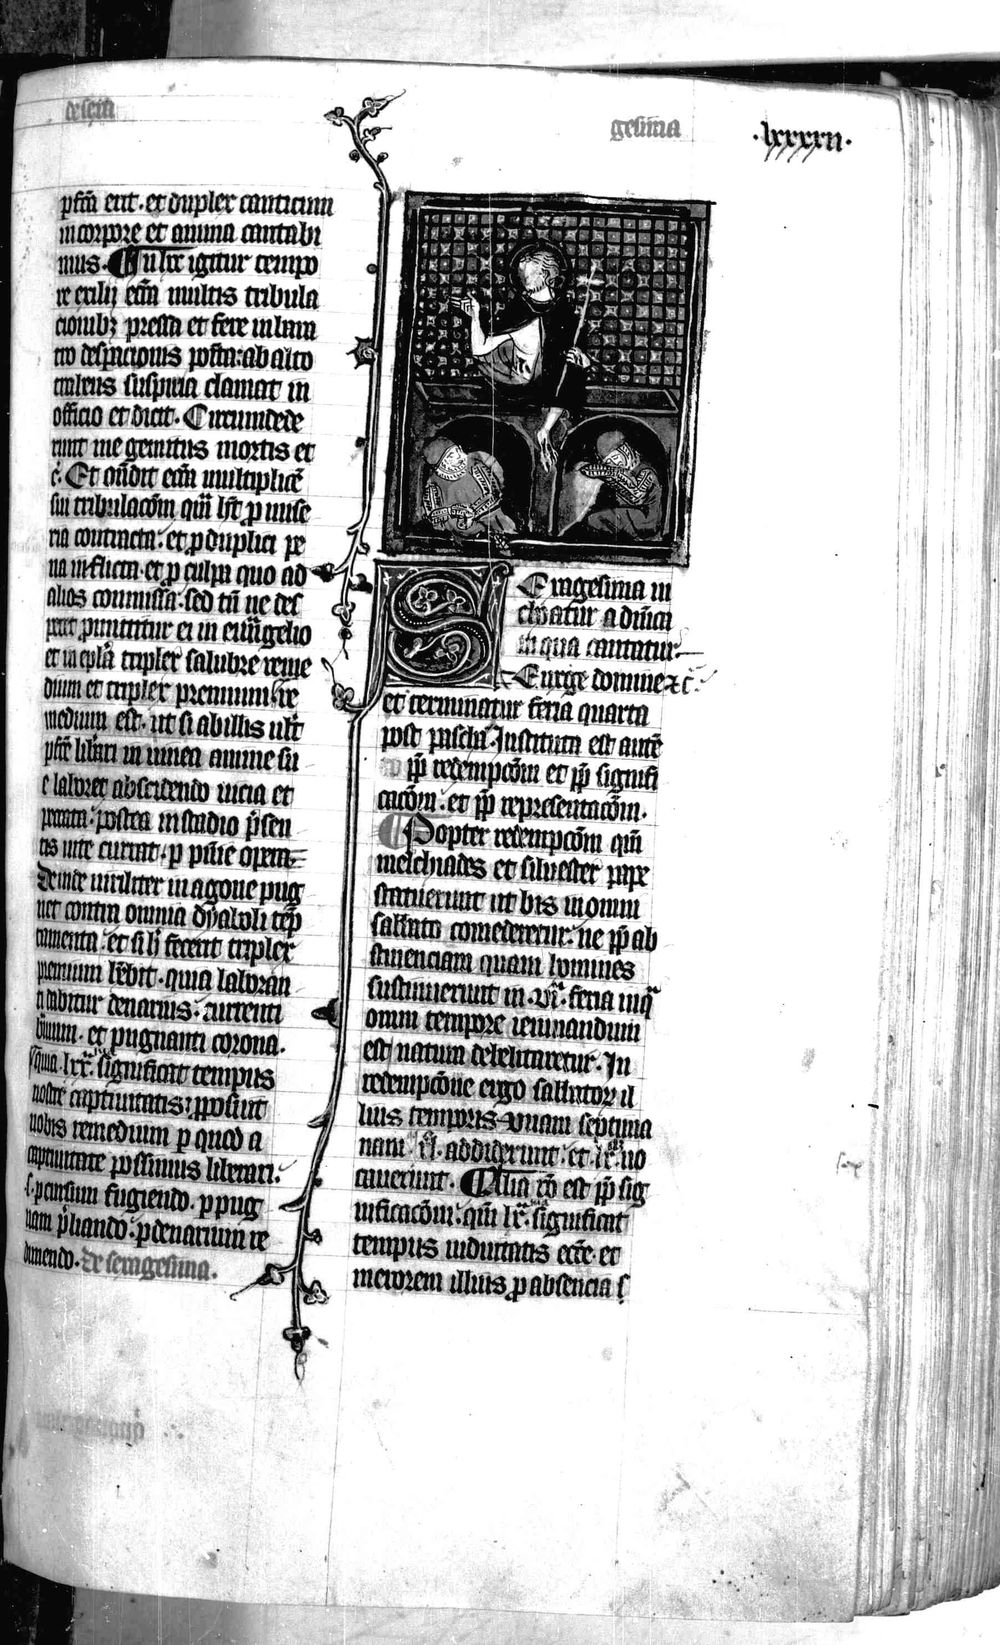 de sexa
gesima
.lxxxxii.
pfcā erit . et duplex canticum
in corpore et anima cantabi
mus . Em̄ hc̄ igitur tempo
re exilij ecc̄a multis tribula
cionibꝫ pressa et fere in bara
tro desperacionis posita : ab alto
trahens suspiria clamat in
officio et dicit . Circumdede
runt me gemitus mortis et
c̄ . Et on̄dit ecc̄a multiplicē
sui tribulacōm quā hꝫ ꝓ mise
ria contracta : et ꝓ duplici pe
na inflicta . et ꝓ culpa quo ad
alios commissa . sed tn̄ ne des
peret proponitur ei in euāgelio
et in epl̄a triplex salubre reme
dium et triplex premium . re
medium est . ut si ab illis ult̄
pfc̄e lib̄ari in uinea anime su
e laboret abscidendo uicia et
peccata : postea in stadio p̄sen
tis uite currat . ꝑ pn̄ie opera
Deinde uiriliter in agone pug
net contra omnia dyaboli tēp
tamenta : et si h̄ fecerit triplex
premium hēbit . quia laboran
ti dabitur denarius : currenti
brauium . et pugnanti corona .
quia . lxx . significat tempus
nostre captiuitatis : ꝓponit
nobis remedium ꝑ quod a
captiuitate possimus liberari .
s . ꝑ cursum fugiendo . ꝑ pug
nam p̄liando : ꝑ denarium re
dimendo . de sexagesima .
Sexagesima in
choatur a dn̄ica
in qua cantatur
Exurge domine ⁊c̄ .
et terminatur feria quarta
post pascha . Instituta est autē
ꝓp̄ redempcōm et ꝓp̄ signifi
cacōm . et ꝓp̄ representacōm .
Propter redempcōm qm̄
melchiades et siluester pape
statuerunt ut bis in omni
sabbato comederetur : ne ꝓp̄ ab
stinenciam quam homines
sustinuerunt in . vi . feria in qua
omni tempore ieiunandum
est natura debilitaretur . In
redempcōne ergo sabbatorꝫ il
lius temporis unam septima
nam ei . addiderunt : et lx . uo
cauerunt . Alia rō est ꝓp̄ sig
nificacōm : qm̄ lx . significat
tempus uiduitatis ecc̄e . et
merorem illius ꝓ absencia s